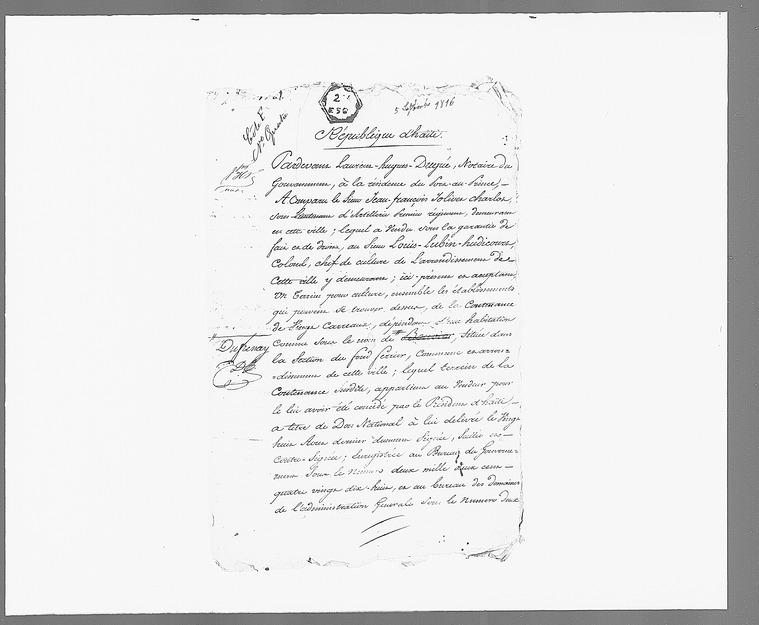 5 Septembre 1816
2
ESC
Cote F.
No. Quatre
République d'haïti.
Pardevant Laurent-hugues-Deugué, Notaire du
Gouvernement, à la résidence du Port-au-Prince,
A Comparu le Sieur Jean-françois Jolivet charlot
sous-lieutenant d'Artillerie Premier régiment, demeurant
en cette ville ; lequel a Vendu sous la garantie de
fait et de droit, au Sieur Louis-Lubin-hudicourt,
Colonel, chef de culture de L'arrondissement de
Cette ville y demeurant ; ici présent et acceptant
Un Terrein pour culture, ensemble les établissements
qui peuvent se trouver dessus, de la Contenance
de Vingt Carreaux, dépendant d'une habitation
Connue sous le nom de située dans
la Section du fond ferrier, Commune et arron-
-dissement de cette ville ; lequel terrein de la
Contenance Susdite, appartient au Vendeur pour
le lui avoir été concédé par le Président d'haïti,
a titre de Don National à lui délivré le Vingt
huit Avril dernier duement Signé, Scellé et
Contre-Signé ; Enregistré au Bureau du Gouverne-
ment Sous le Numéro deux mille deux cent
quatre vingt dix-huit, et au bureau des domaines
de l'administration Générale Sous le Numero deux
Dufrenay